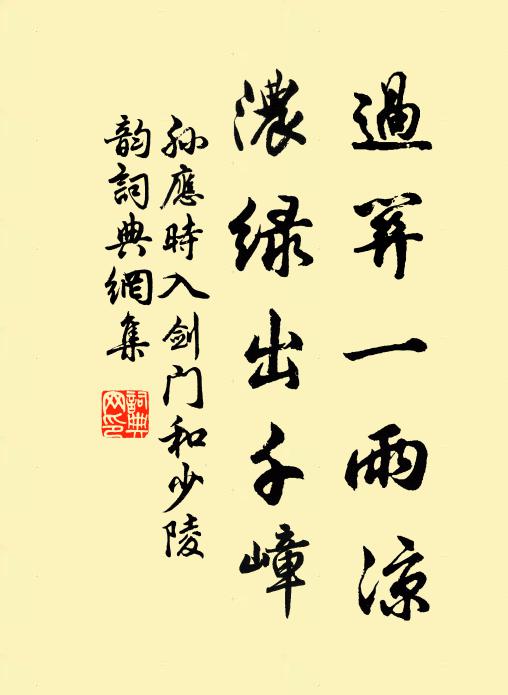 過笄一雨涼
濃緑出千嶂
孫應時入剑门和少陵
韵詞典網集
詞典
网印